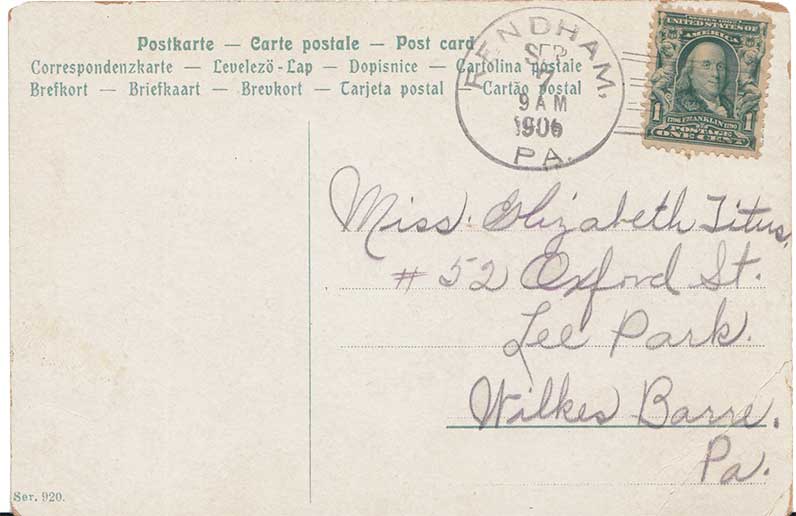 Postkarte — Carte postale — Post card
Correspondenzkarte — Levelező-Lap — Dopisnice — Cartolina postale
Brefkort — Briefkaart — Brevkort — Tarjeta postal — Cartão postal
RENDHAM,
SEP
7
9 AM
1906
PA.
SERIES 1902
UNITED STATES OF
AMERICA
1 1
1706 FRANKLIN 1790
POSTAGE
ONE CENT
Miss. Elizabeth Titus,
# 52 Oxford St.
Lee Park.
Wilkes Barre.
Pa.
Ser. 920.